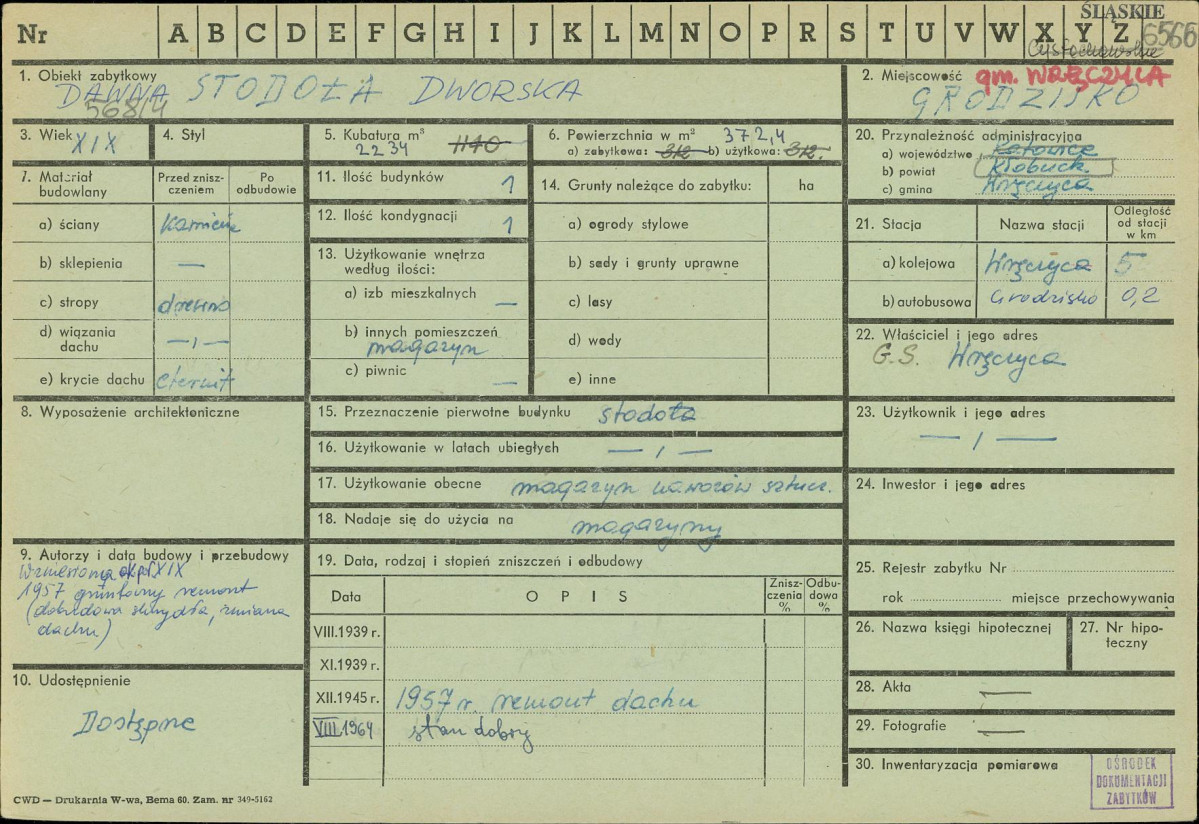 ŚLĄSKIE
Nr A B C D E F G H I J K L M N O P R S T U V W X Y Z 6566
Częstochowskie
1. Obiekt zabytkowy
DAWNA STODOŁA DWORSKA
568/4
2. Miejscowość gm. WRĘCZYCA
GRODZISKO
3. Wiek XIX
4. Styl
5. Kubatura m³
2234 1140
6. Powierzchnia w m² 372,4
a) zabytkowa: 312 b) użytkowa: 312.
20. Przynależność administracyjna
a) województwo Katowice
b) powiat Kłobuck
c) gmina Wręczyca
7. Materiał budowlany
Przed znisz-
czeniem
Po
odbudowie
a) ściany kamień
b) sklepienia —
c) stropy drewno
d) wiązania
dachu —„—
e) krycie dachu eternit
11. Ilość budynków 1
12. Ilość kondygnacji 1
13. Użytkowanie wnętrza
według ilości:
a) izb mieszkalnych —
b) innych pomieszczeń
magazyn
c) piwnic —
14. Grunty należące do zabytku: ha
a) ogrody stylowe
b) sady i grunty uprawne
c) lasy
d) wody
e) inne
21. Stacja
Nazwa stacji
Odległość
od stacji
w km
a) kolejowa Wręczyca 5
b) autobusowa Grodzisko 0,2
22. Właściciel i jego adres
G.S. Wręczyca
8. Wyposażenie architektoniczne
15. Przeznaczenie pierwotne budynku stodoła
16. Użytkowanie w latach ubiegłych —„—
17. Użytkowanie obecne magazyn nawozów sztucz.
18. Nadaje się do użycia na magazyny
23. Użytkownik i jego adres
—„—
24. Inwestor i jego adres
9. Autorzy i data budowy i przebudowy
Wzniesiona ok. poł. XIX
1957 gruntowny remont
(dobudowa skrzydła, zmiana
dachu)
10. Udostępnienie
Dostępne
19. Data, rodzaj i stopień zniszczeń i odbudowy
Data
OPIS
Znisz-
czenia
%
Odbu-
dowa
%
VIII.1939 r.
XI.1939 r.
XII.1945 r. 1957 r. remont dachu
VIII.1964 stan dobry
25. Rejestr zabytku Nr
rok miejsce przechowywania
26. Nazwa księgi hipotecznej
27. Nr hipo-
teczny
28. Akta —
29. Fotografie —
30. Inwentaryzacja pomiarowa
OŚRODEK
DOKUMENTACJI
ZABYTKÓW
CWD — Drukarnia W-wa, Bema 60. Zam. nr 349-5162